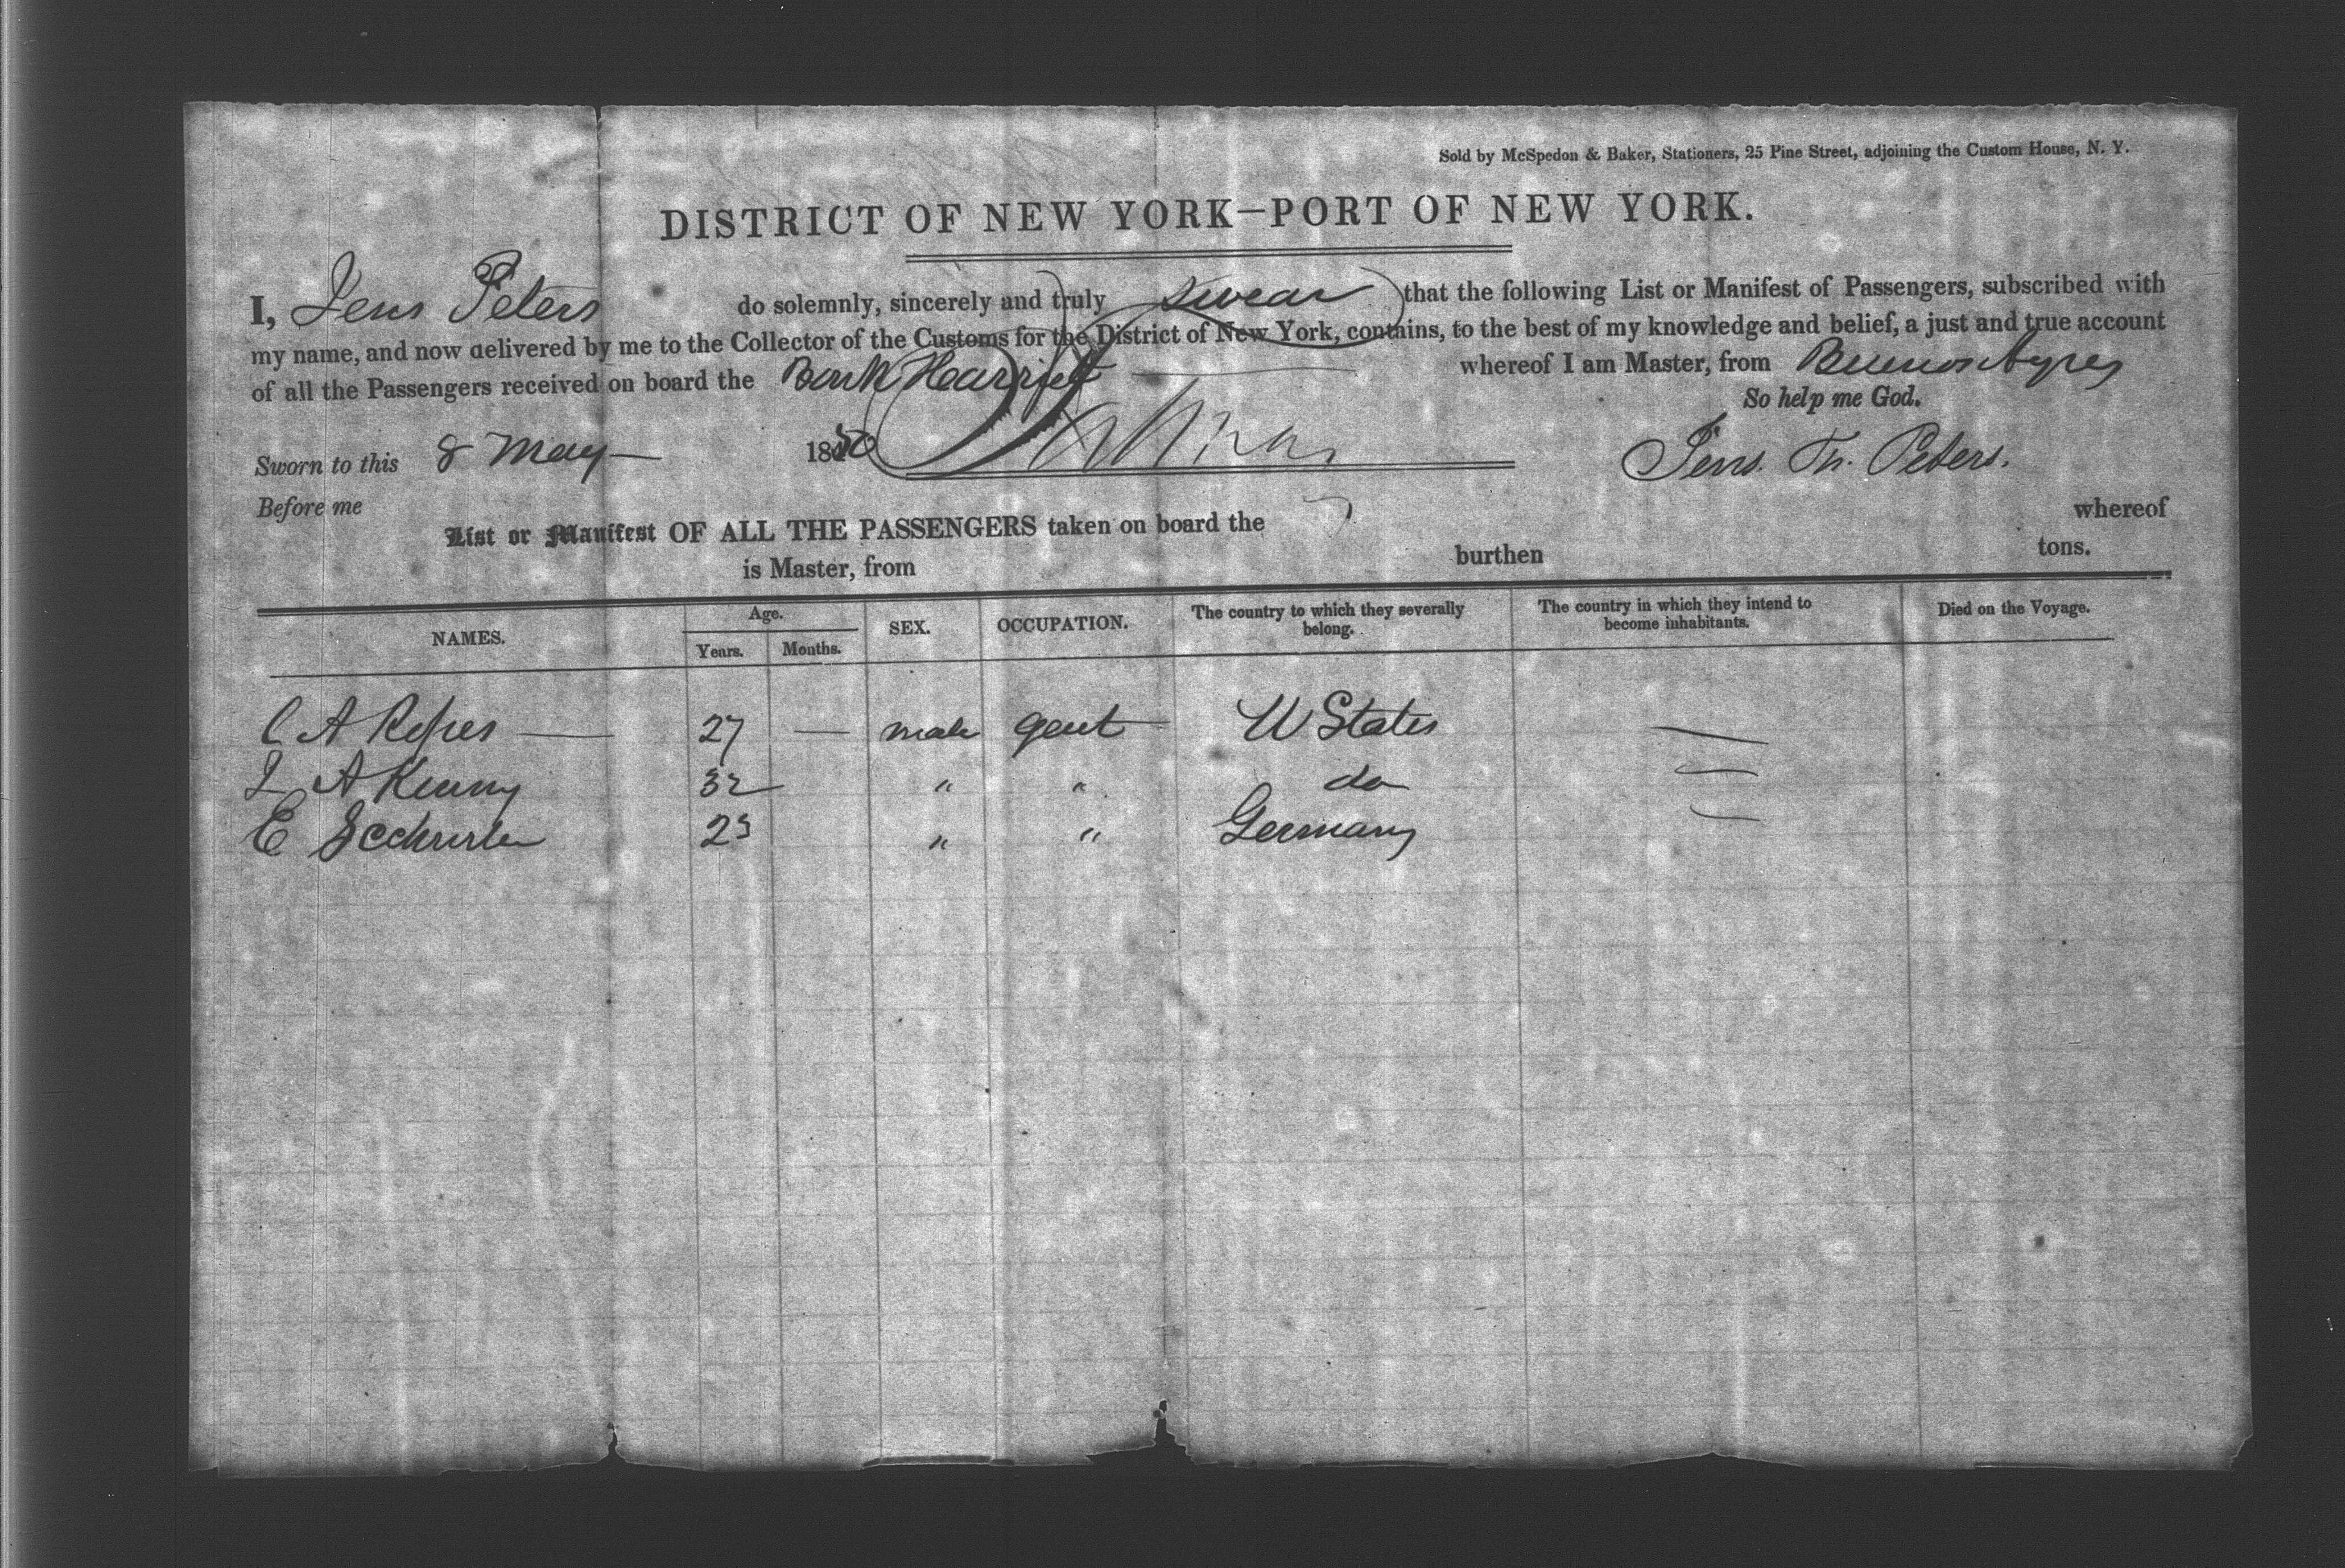 Sold by McSpedon & Baker, Stationers, 25 Pine Street, adjoining the Custom House, N. Y.
DISTRICT OF NEW YORK—PORT OF NEW YORK.
I, Jens Peters do solemnly, sincerely and truly swear that the following List or Manifest of Passengers, subscribed with
my name, and now delivered by me to the Collector of the Customs for the District of New York, contains, to the best of my knowledge and belief, a just and true account
of all the Passengers received on board the Bark Harriett whereof I am Master, from Buenos Ayres
So help me God.
Sworn to this 8 May 1850 Jens. Th. Peters.
Before me
List or Manifest OF ALL THE PASSENGERS taken on board the whereof
is Master, from burthen tons.
NAMES. Age. Years. Months. SEX. OCCUPATION. The country to which they severally belong. The country in which they intend to become inhabitants. Died on the Voyage.
C A 27 — male gent U States —
A Kenny 32 " " do —
E 23 " " Germany —